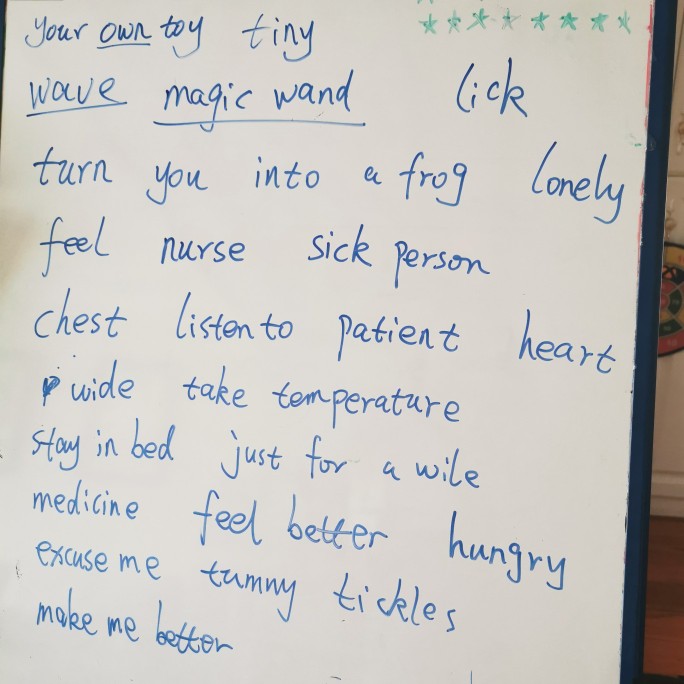 your own toy tiny
wave magic wand lick
turn you into a frog lonely
feel nurse sick person
chest listen to patient heart
wide take temperature
stay in bed just for a wile
medicine feel better hungry
excuse me tummy tickles
make me better